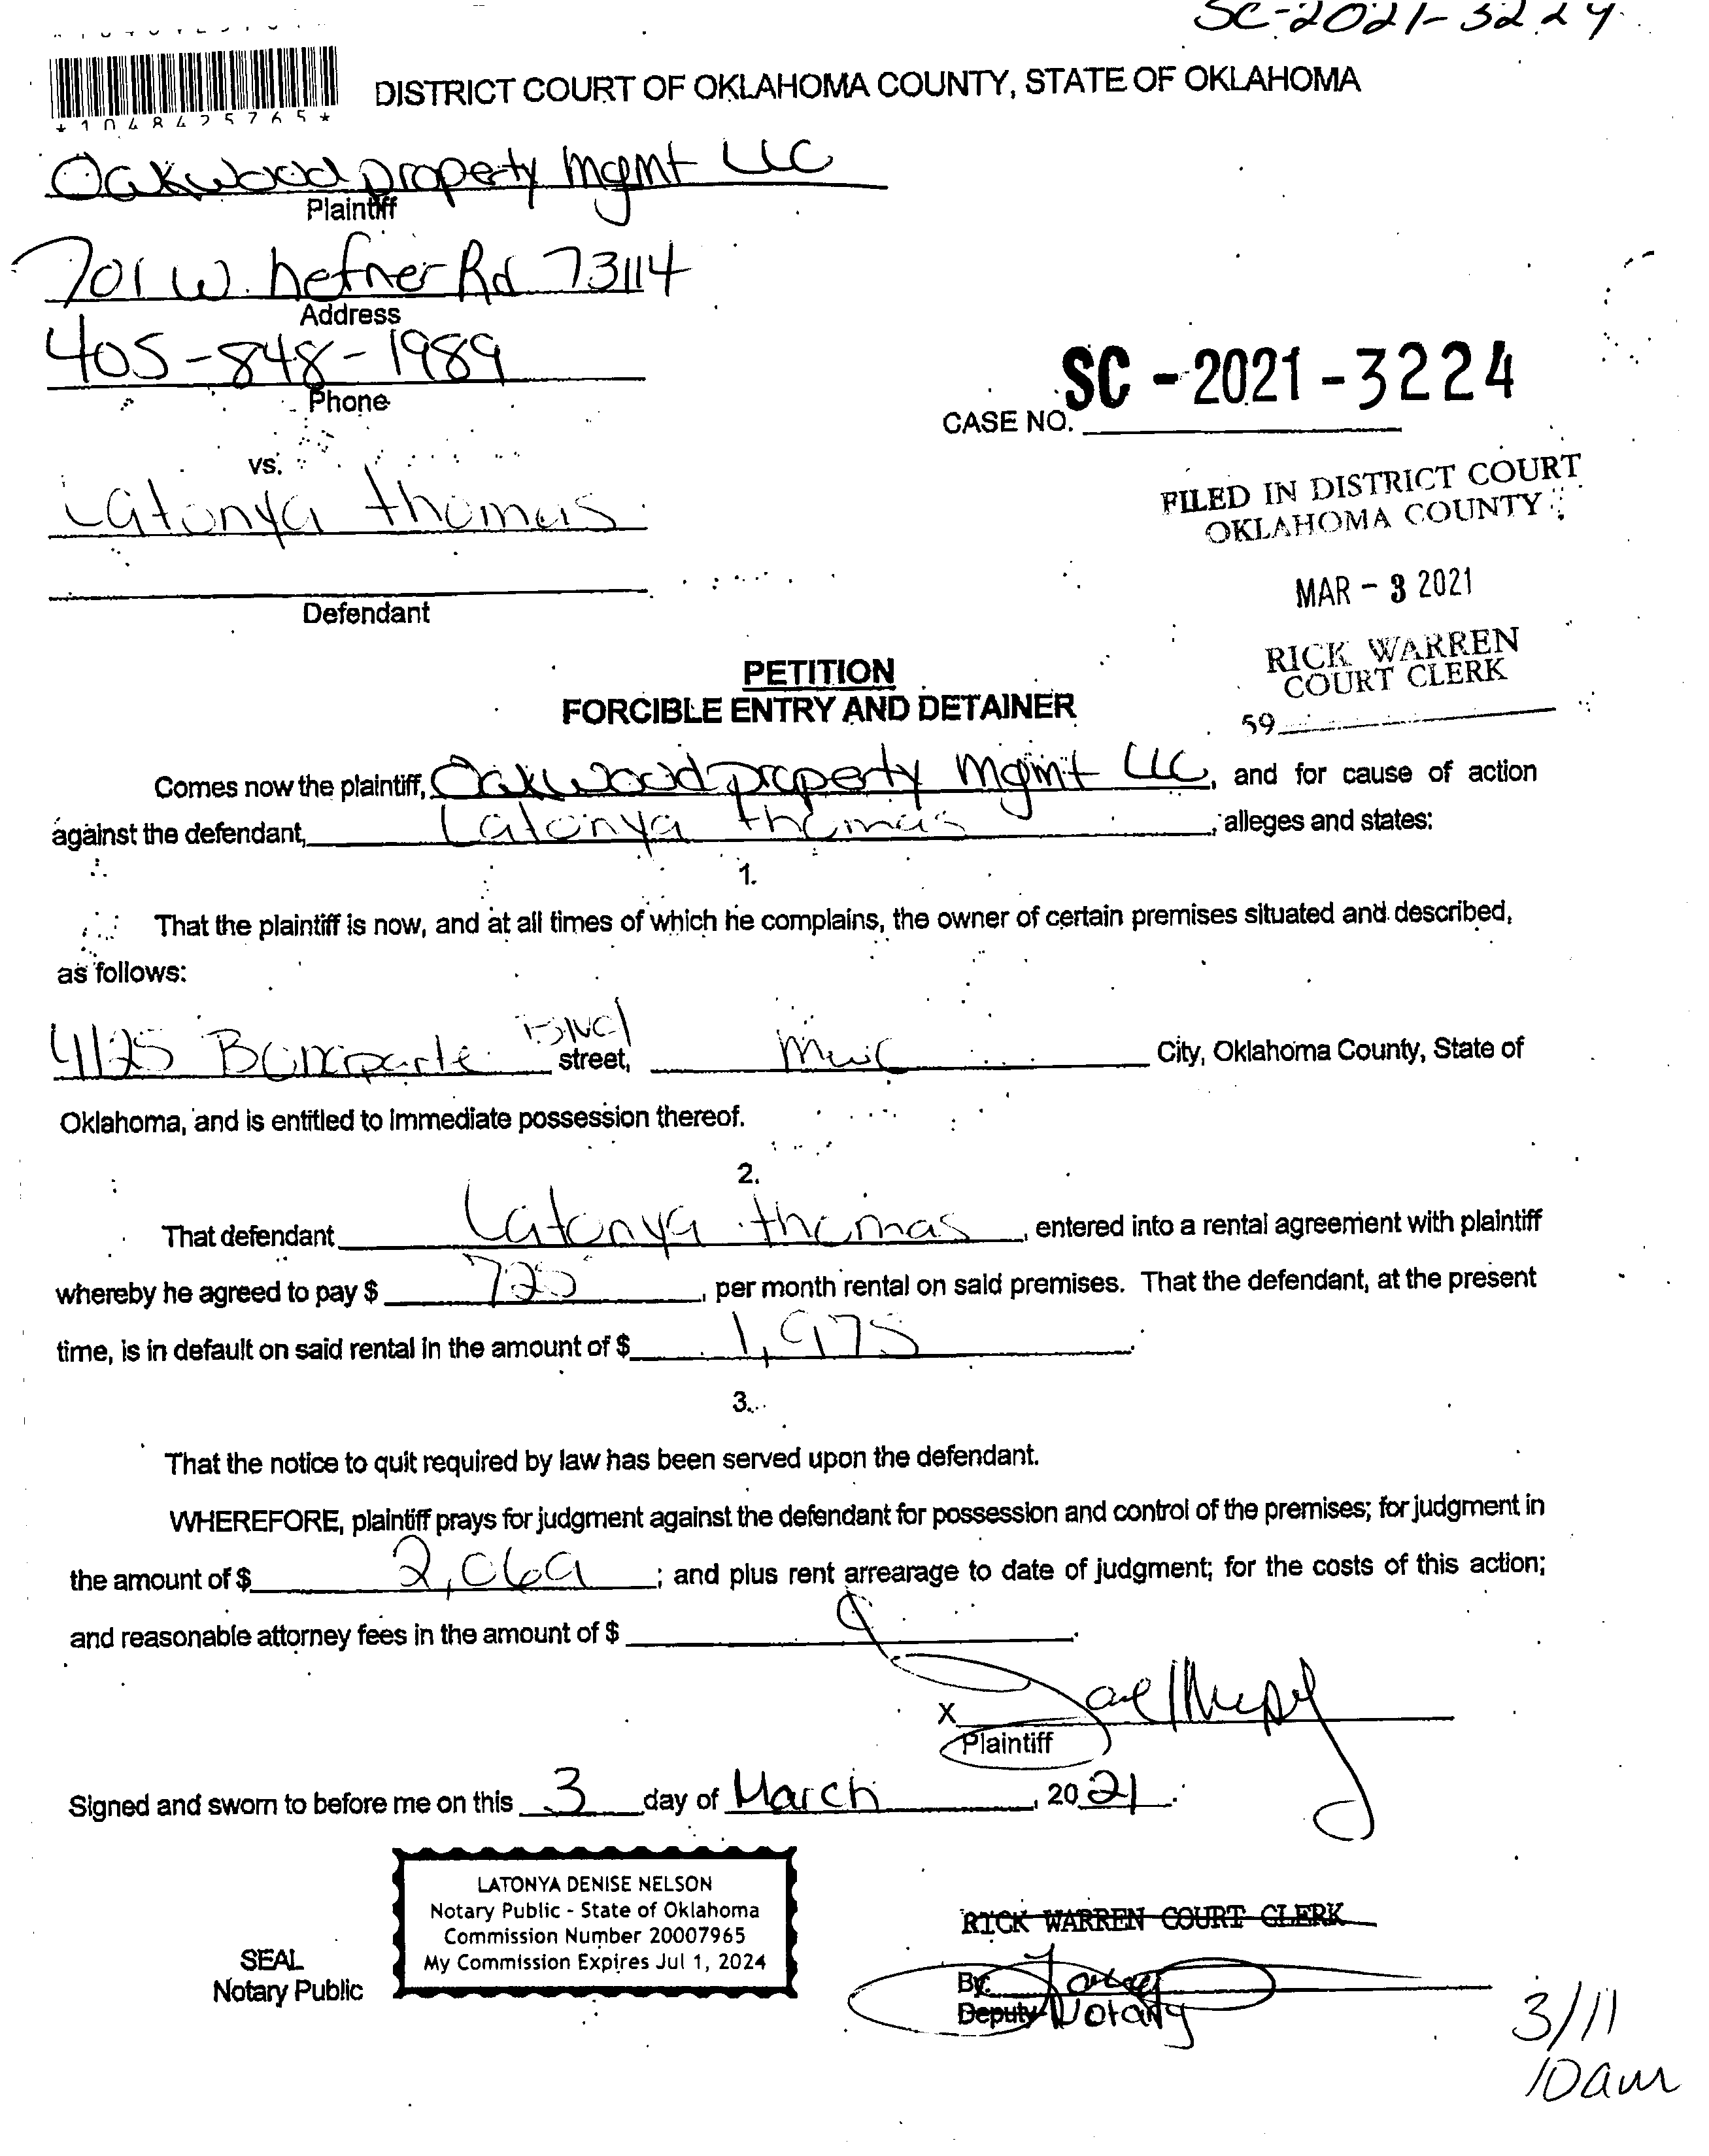 SC-2021-3224
*1048425765*
DISTRICT COURT OF OKLAHOMA COUNTY, STATE OF OKLAHOMA
Oakwood property mgmt LLC
Plaintiff
701 W. hefner Rd 73114
Address
405-848-1989
Phone
SC - 2021 - 3224
CASE NO.
vs.
Latonya thomas
FILED IN DISTRICT COURT
OKLAHOMA COUNTY
MAR - 3 2021
Defendant
RICK WARREN
COURT CLERK
59
PETITION
FORCIBLE ENTRY AND DETAINER
Comes now the plaintiff, Oakwood property mgmt LLC, and for cause of action
against the defendant, Latonya thomas, alleges and states:
1.
That the plaintiff is now, and at all times of which he complains, the owner of certain premises situated and described,
as follows:
4125 Bonaparte Blvd street, mwc City, Oklahoma County, State of
Oklahoma, and is entitled to immediate possession thereof.
2.
That defendant Latonya thomas, entered into a rental agreement with plaintiff
whereby he agreed to pay $ 725, per month rental on said premises. That the defendant, at the present
time, is in default on said rental in the amount of $ 1,975.
3.
That the notice to quit required by law has been served upon the defendant.
WHEREFORE, plaintiff prays for judgment against the defendant for possession and control of the premises; for judgment in
the amount of $ 2,069; and plus rent arrearage to date of judgment; for the costs of this action;
and reasonable attorney fees in the amount of $
X
Plaintiff
Signed and sworn to before me on this 3 day of March, 2021.
LATONYA DENISE NELSON
Notary Public - State of Oklahoma
Commission Number 20007965
My Commission Expires Jul 1, 2024
SEAL
Notary Public
RICK WARREN COURT CLERK
By:
Deputy Notary
3/11
10am